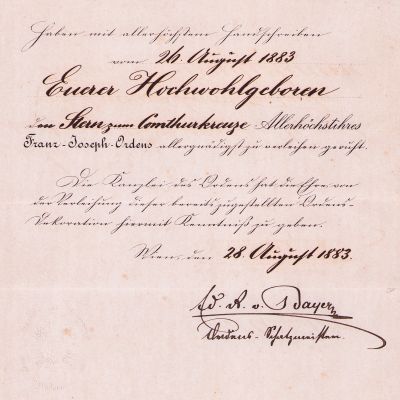 Haben mit allerhöchstem Handschreiben
vom 26. August 1883
Euerer Hochwohlgeboren
den Stern zum Comthurkreuze Allerhöchstihres
Franz-Joseph-Ordens allergnädigst zu verleihen geruht.
Die Kanzlei des Ordens hat die Ehre von
der Verleihung dieser bereits zugestellten Ordens-
Dekoration hiermit Kenntniß zu geben.
Wien, den 28. August 1883.
Ed. R. v. Bayer
Ordens-Schatzmeister.